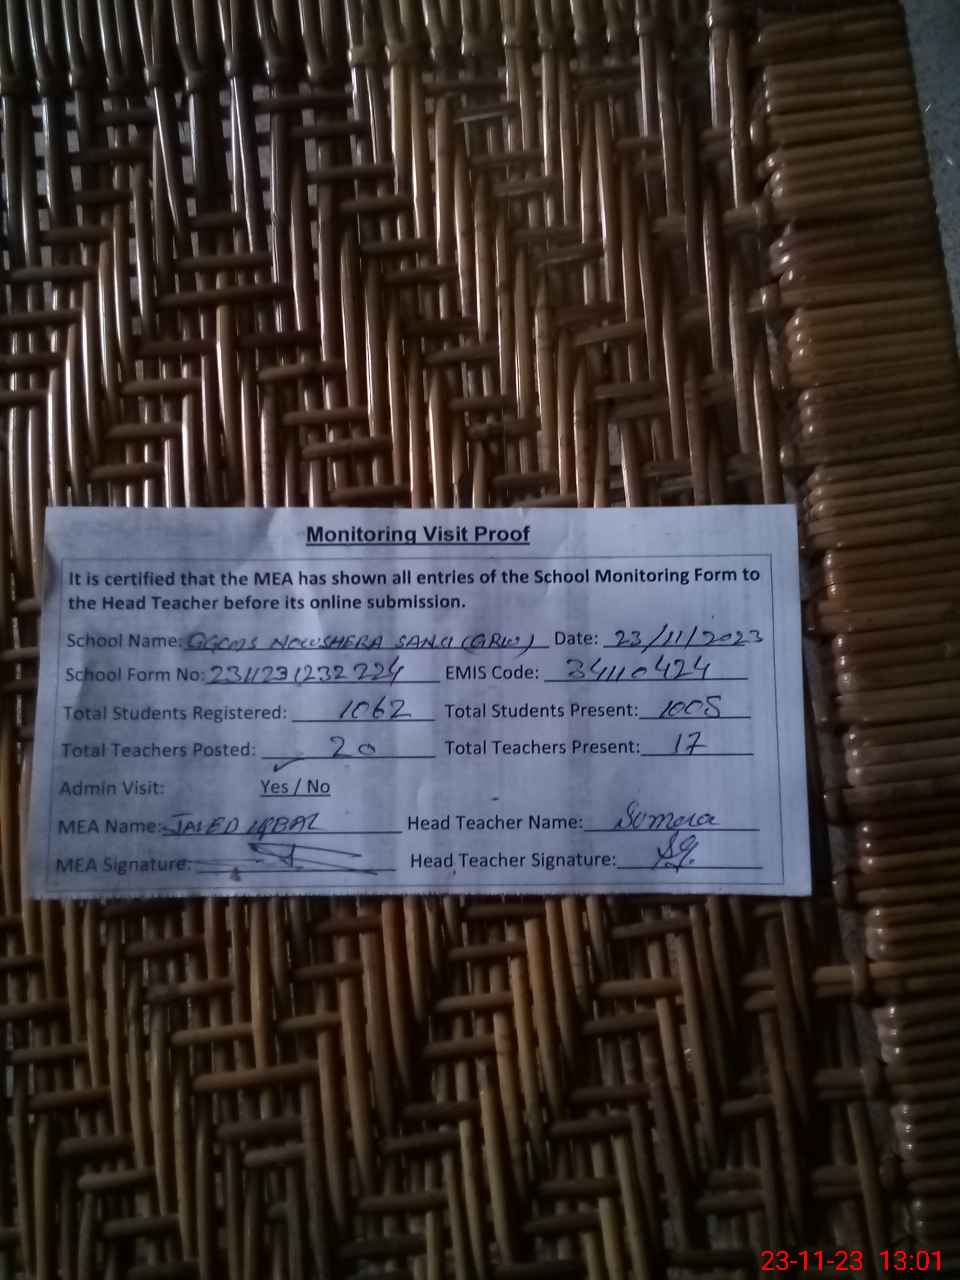 Monitoring Visit Proof
It is certified that the MEA has shown all entries of the School Monitoring Form to
the Head Teacher before its online submission.
School Name: GGCMS NOWSHERA (GRW) Date: 23/11/2023
School Form No: 2311231232224 EMIS Code: 34110424
Total Students Registered: 1062 Total Students Present: 1005
Total Teachers Posted: 20 Total Teachers Present: 17
Admin Visit: Yes / No
MEA Name: IQBAL Head Teacher Name: Sumera
MEA Signature: Head Teacher Signature:
23-11-23 13:01